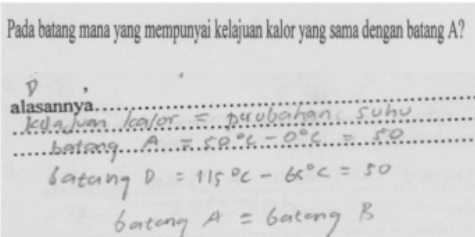 Pada batang mana yang mempunyai kelajuan kalor yang sama dengan batang A?
D ,
alasannya
kelajuan kalor = perubahan suhu
batang A = 50°C - 0°C = 50
batang D = 115°C - 65°C = 50
batang A = batang B